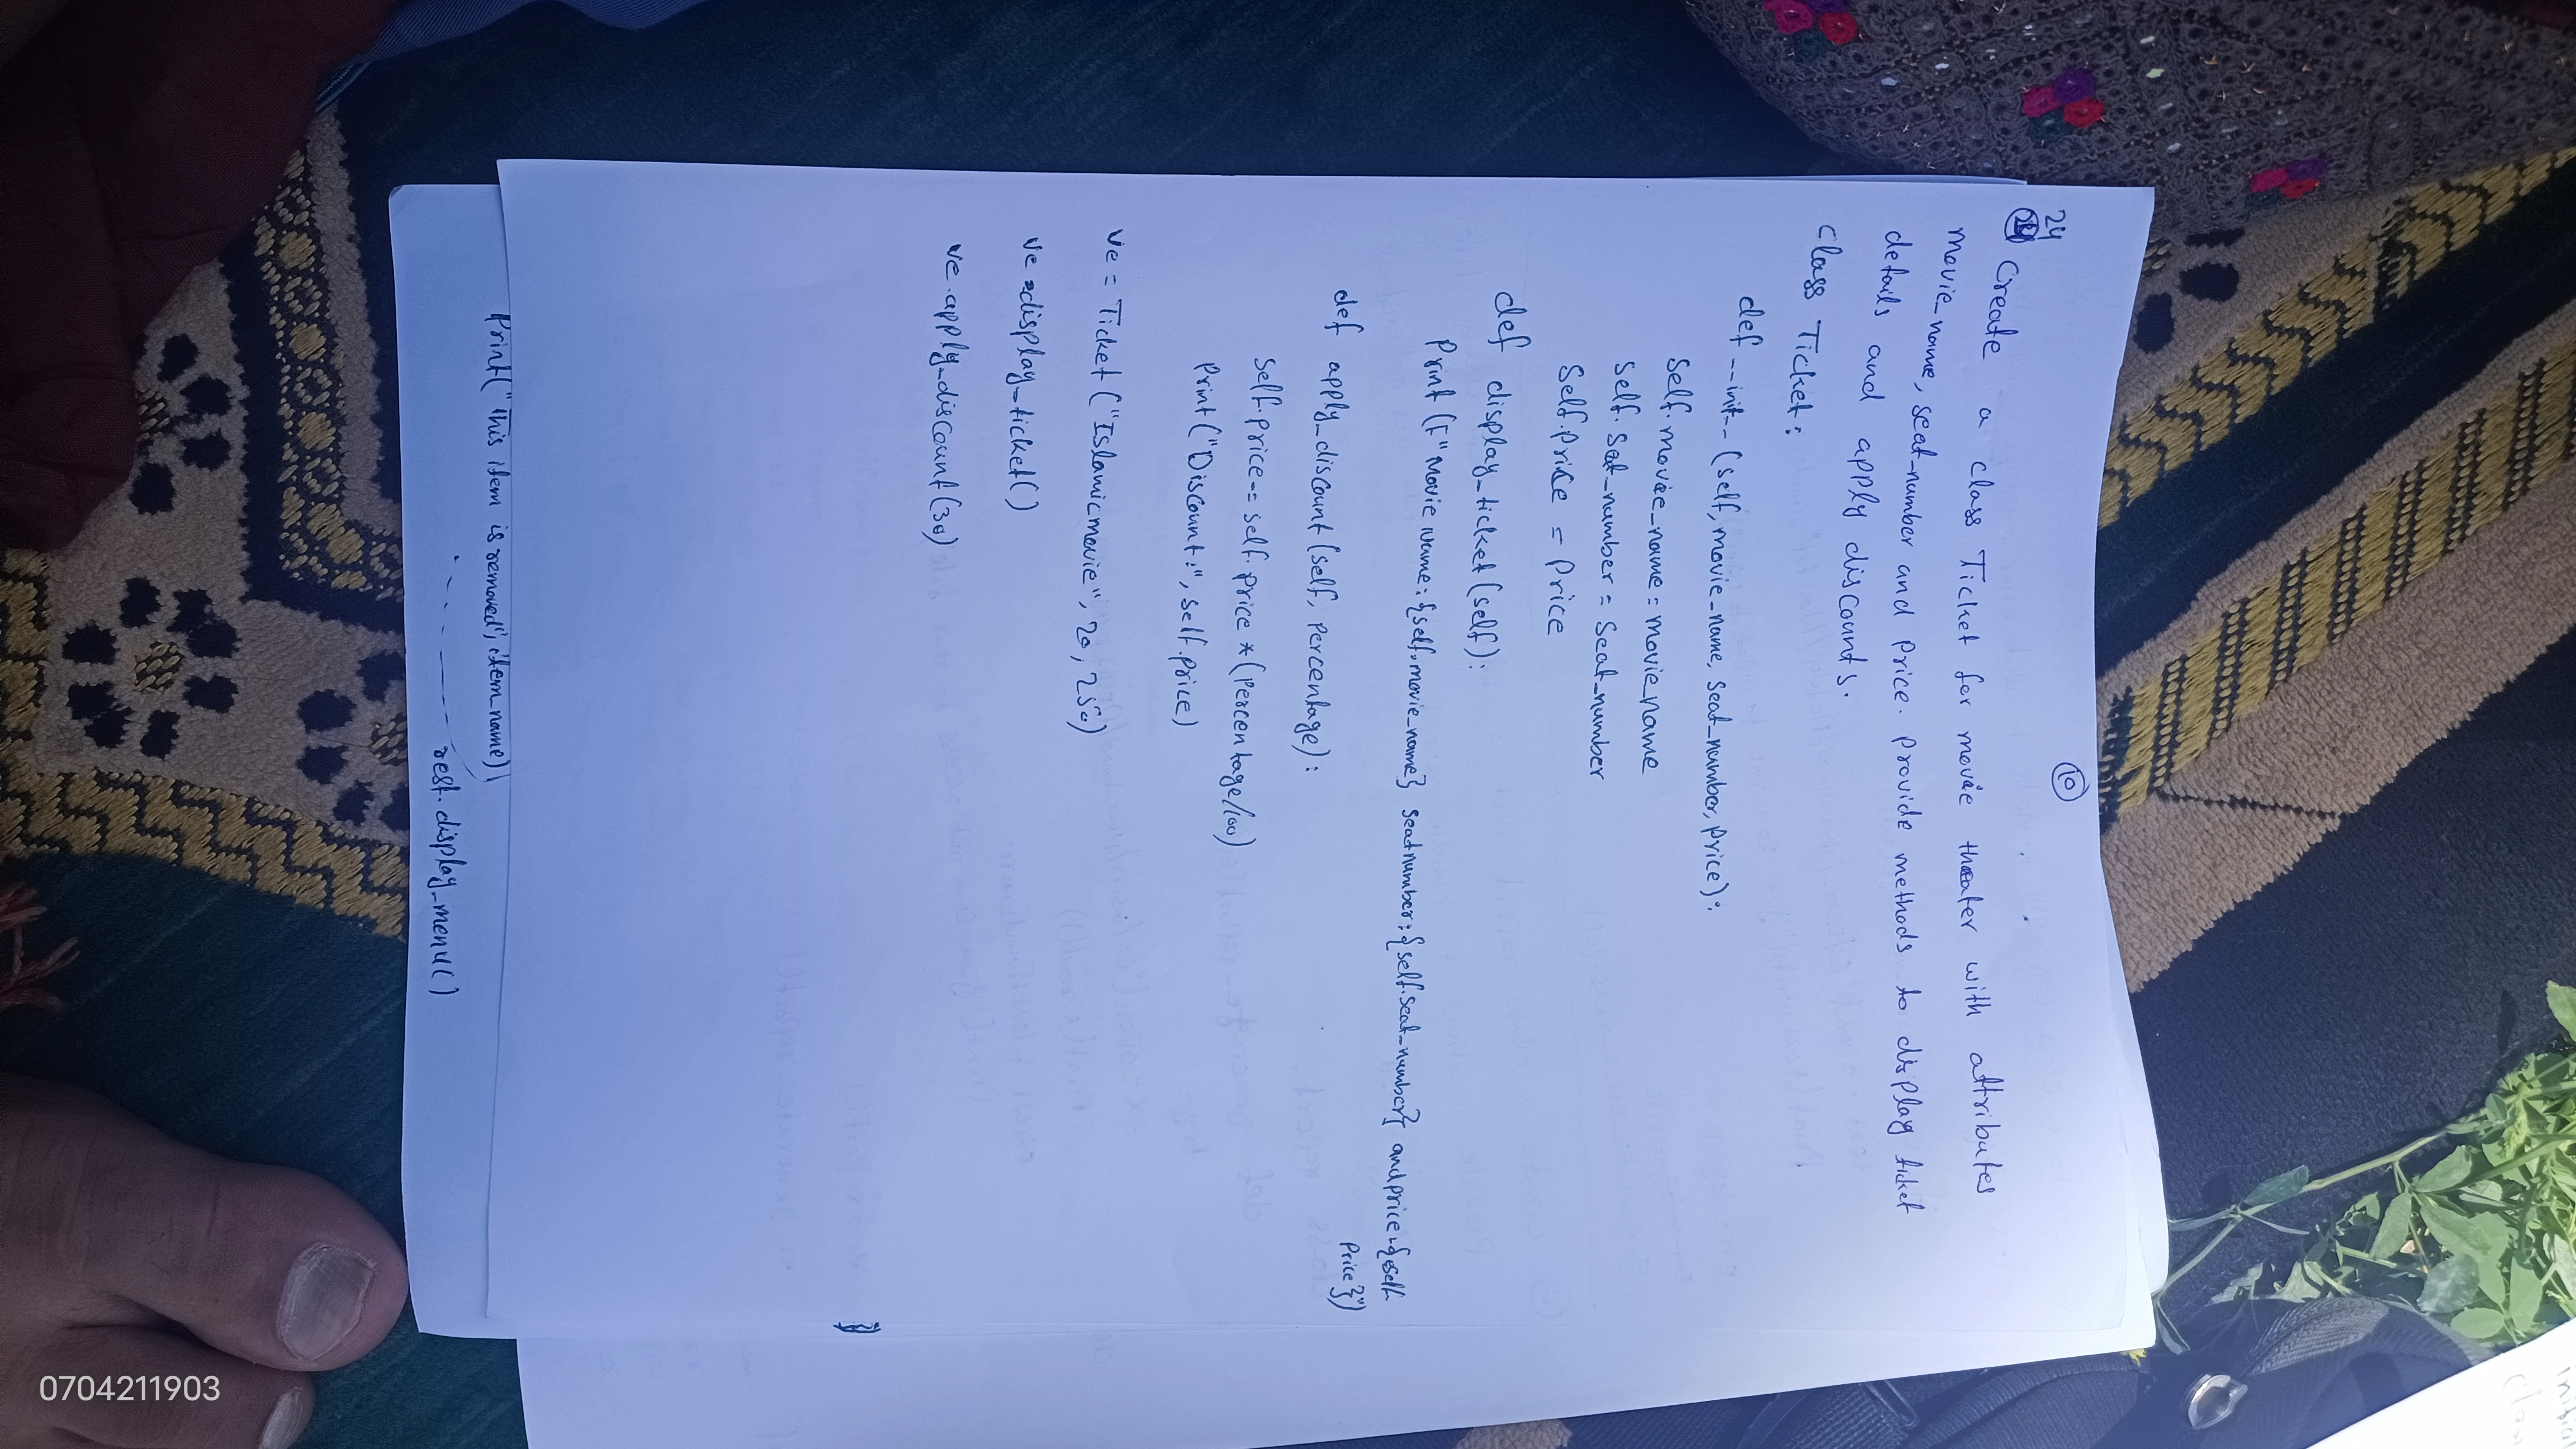 10
24
Create a class Ticket for movie theater with attributes
movie_name, seat_number and price. provide methods to display ticket
details and apply discounts.
class Ticket:
def __init__(self, movie_name, seat_number, price):
self.movie_name = movie_name
self.seat_number = seat_number
self.price = price
def display_ticket(self):
print(f"Movie name:{self.movie_name} seatnumber:{self.seat_number} and price:{self.
price}")
def apply_discount(self, percentage):
self.price -= self.price * (percentage/100)
print("Discount:", self.price)
ve = Ticket("Islamicmovie", 20, 250)
ve =display_ticket()
ve.apply_discount(30)
Print("This item is removed", item_name)
rest.display_menu()
0704211903